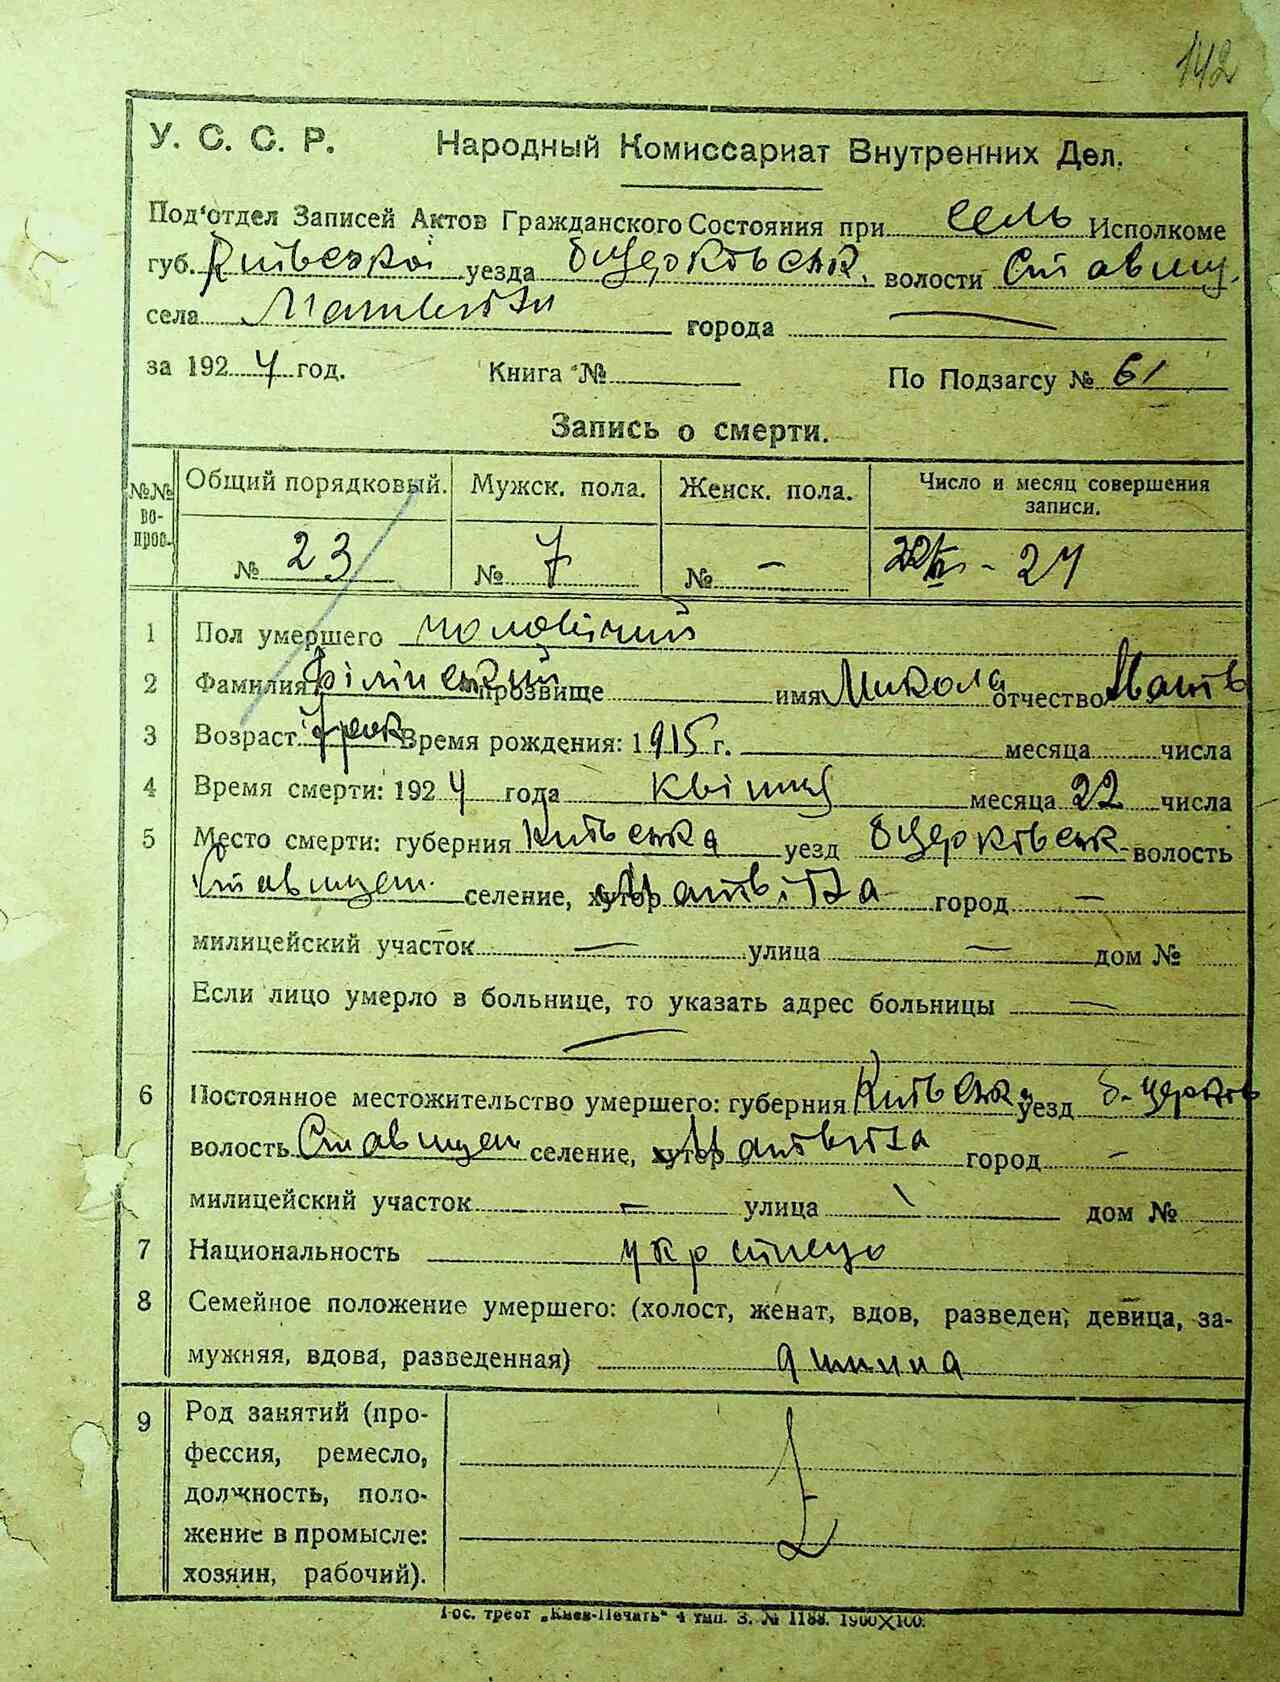 142
У. С. С. Р. Народный Комиссариат Внутренних Дел.
Под'отдел Записей Актов Гражданского Состояния при сель Исполкоме
губ. Київської уезда бцерковськ. волости Ставищ.
села города —
за 1924 год. Книга № По Подзагсу № 61
Запись о смерти.
№№ вопрос. Общий порядковый. Мужск. пола. Женск. пола. Число и месяц совершения записи.
№ 23 № 7 № — - 24
1 Пол умершего чоловічий
2 Фамилия прозвище имя Микола отчество Матв
3 Возраст Время рождения: 1915 г. месяца числа
4 Время смерти: 1924 года квітня месяца 22 числа
5 Место смерти: губерния Київська уезд бцерковськ. волость
Ставищен. селение, хутор город —
милицейский участок — улица — дом №
Если лицо умерло в больнице, то указать адрес больницы —
—
6 Постоянное местожительство умершего: губерния Київська уезд б-церков
волость Ставищен селение, хутор город —
милицейский участок — улица дом №
7 Национальность
8 Семейное положение умершего: (холост, женат, вдов, разведен, девица, за-
мужняя, вдова, разведенная)
9 Род занятий (про-
фессия, ремесло,
должность, поло-
жение в промысле:
хозяин, рабочий).
Гос. трест „Киев-Печать“ 4 тип. З. № 1188. 1900X100.